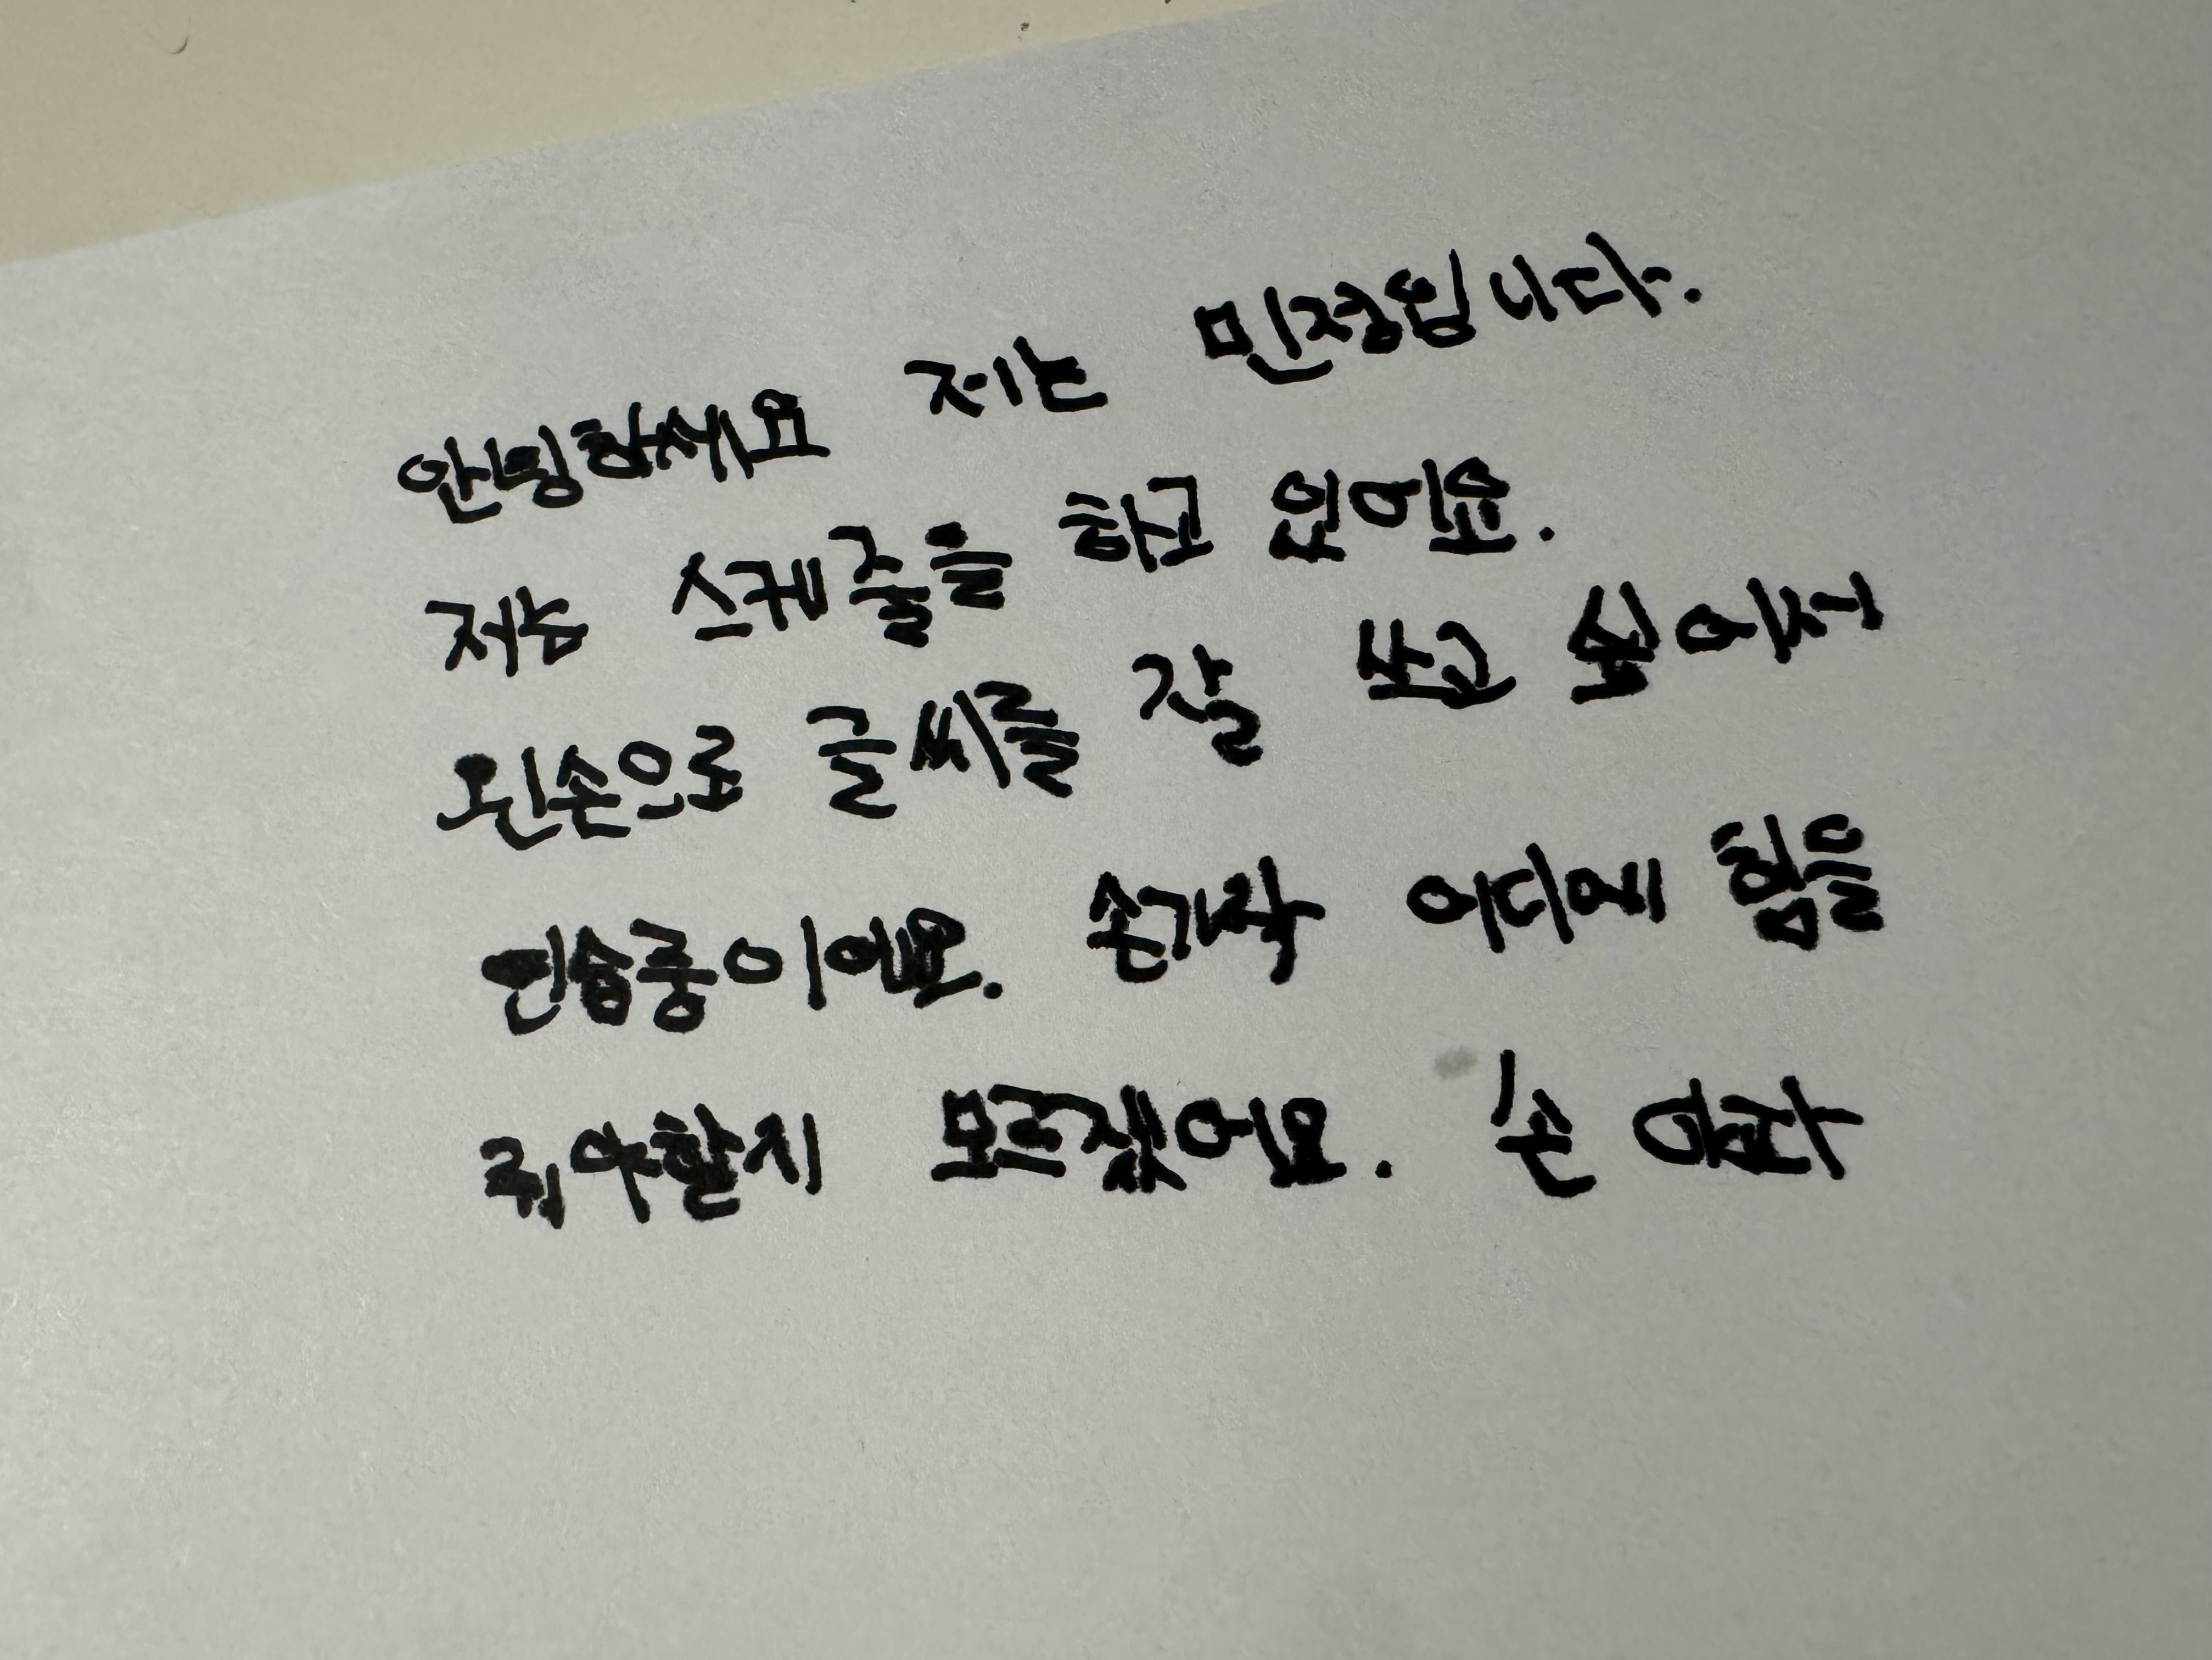 안녕하세요 저는 민정입니다.
저는 스케줄을 하고 있어요.
왼손으로 글씨를 잘 쓰고 싶어서
연습중이에요. 손가락 어디에 힘을
줘야할지 모르겠어요. 손 아프다